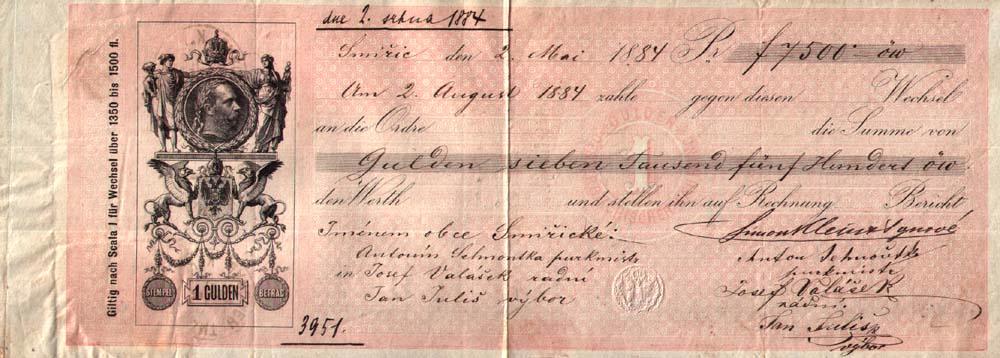 dne 2. srpna 1884
Smiřic den 2. Mai 1884 Pr. f 7500 öw
Am 2. August 1884 zahle gegen diesen Wechsel
an die Ordre die Summe von
Gulden sieben Tausend fünf Hundert öw
den Werth und stellen ihn auf Rechnung Bericht
Jménem obce Smiřické:
Antonín purkmistr
in Josef Valášek radní
Jan Juliš výbor
Anton
purkmistr
Josef Valášek
radní.
Jan Juliš
výbor
3951.
Giltig nach Scala I für Wechsel über 1350 bis 1500 fl.
STEMPEL 1 GULDEN BETRAG
1